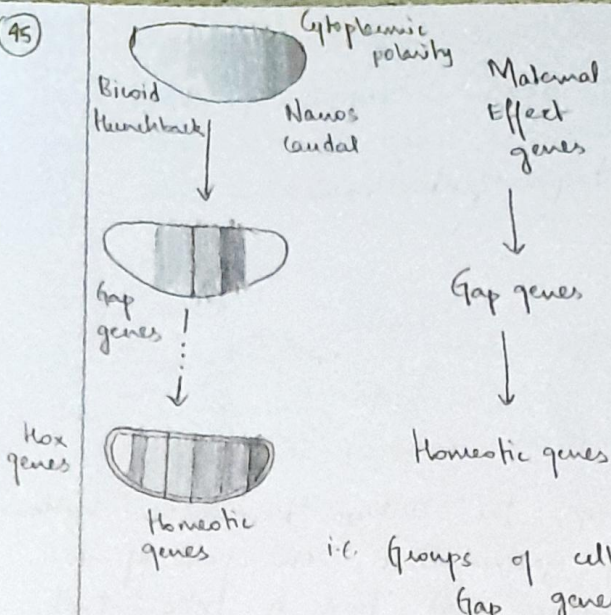 45
Cytoplasmic
polarity
Bicoid
Hunchback
Nanos
Caudal
Maternal
Effect
genes
Gap
genes
Gap genes
Hox
genes
Homeotic genes
Homeotic
genes
i.e. Groups of cell
Gap gene